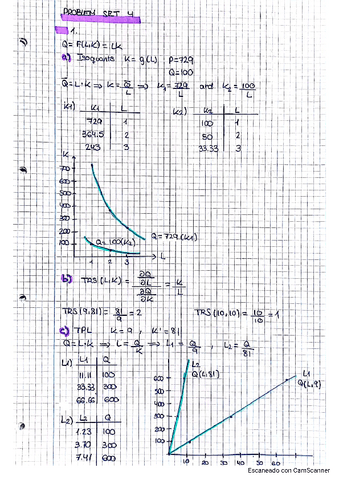 PROBLEM SET 4
1.
Q = F(L,K) = LK
a) Isoquants K = g(L) P=729
Q=100
Q̄ = L·K ⇒ K = Q̄/L ⇒ K₁ = 729/L and K₂ = 100/L
K1) K₁ L K2) K₂ L
729 1 100 1
364.5 2 50 2
243 3 33.33 3
K
700
600
500
400
300
200
100
Q = 729 (K1)
Q=100 (K2)
1 2 3 L
b) TRS (L,K) = ∂Q/∂L / ∂Q/∂K = K/L
TRS (9,81) = 81/9 = 2 TRS (10,10) = 10/10 = 1
c) TPL K = 9, K' = 81
Q = L·K ⇒ L = Q/K ⇒ L₁ = Q/9, L₂ = Q/81
L1) L₁ Q
11.11 100
33.33 300
66.66 600
L2) L₂ Q
1.23 100
3.70 300
7.41 600
L2
Q(L,81)
L1
Q(L,9)
600
500
400
300
200
100
10 20 30 40 50 60
Escaneado con CamScanner